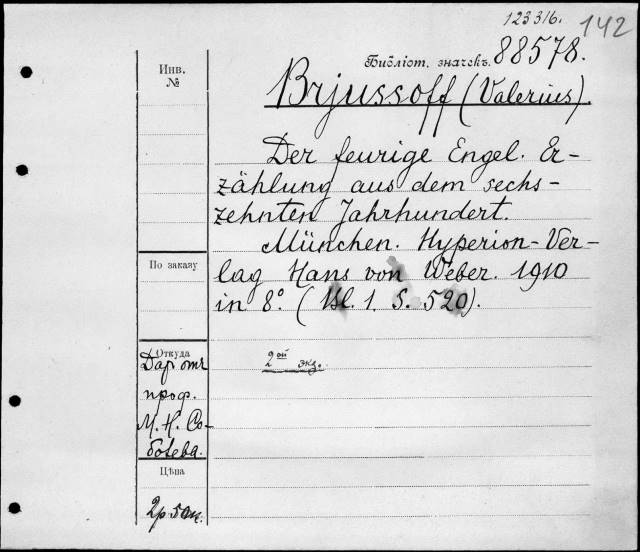 123316. 142
Библіот. значекъ. 88578.
Инв.
№
Brjussoff (Valerius).
Der feurige Engel. Er-
zählung aus dem sechs-
zehnten Jahrhundert.
München. Hyperion-Ver-
По заказу
lag Hans von Weber. 1910
in 8°. (Bl. 1. S. 520).
Откуда
Даръ отъ
проф.
М. Н. Со-
болева.
2ой экз.
Цѣна
2р 50к.